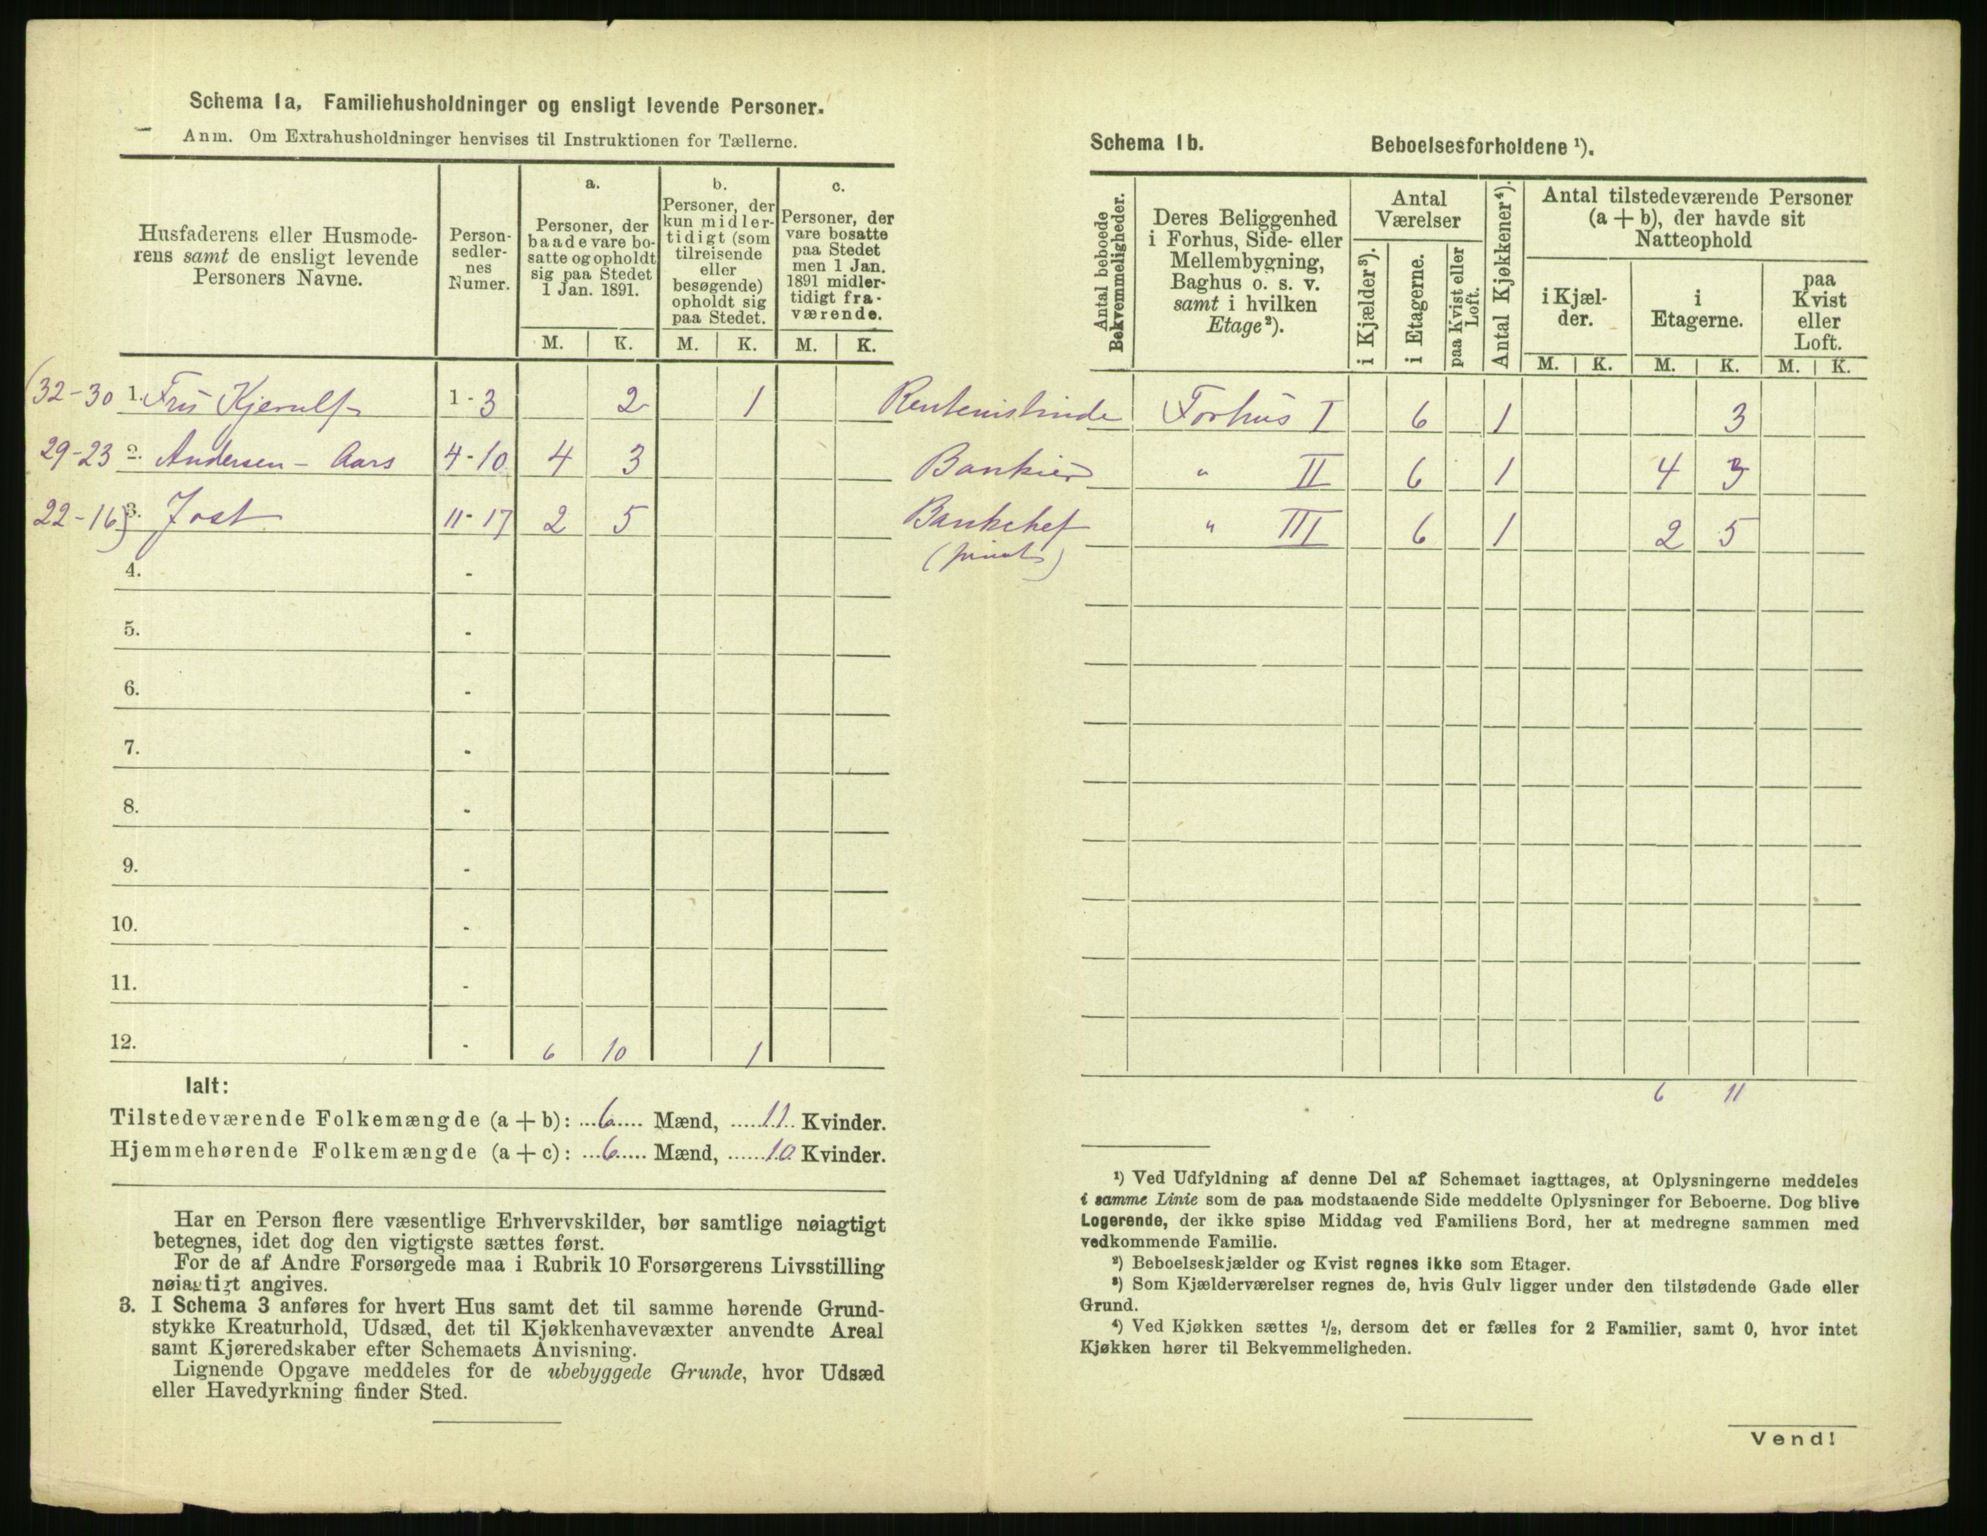 Schema 1a, Familiehusholdninger og ensligt levende Personer.
Anm. Om Extrahusholdninger henvises til Instruktionen for Tællerne.
Husfaderens eller Husmode-
rens samt de ensligt levende
Personers Navne.
Person-
sedler-
nes
Numer.
a.
Personer, der
baade vare bo-
satte og opholdt
sig paa Stedet
1 Jan. 1891.
b.
Personer, der
kun midler-
tidigt (som
tilreisende
eller
besøgende)
opholdt sig
paa Stedet.
c.
Personer, der
vare bosatte
paa Stedet
men 1 Jan.
1891 midler-
tidigt fra-
værende.
M. K. M. K. M. K.
(32-30 1. Fru Kjerulf 1-3 2 1
29-23 2. Andersen-Aars 4-10 4 3
22-16) 3. Jost 11-17 2 5
4. -
5. -
6. -
7. -
8. -
9. -
10. -
11. -
12. - 6 10 1
Ialt:
Tilstedeværende Folkemængde (a + b): 6 Mænd, 11 Kvinder.
Hjemmehørende Folkemængde (a + c): 6 Mænd, 10 Kvinder.
Har en Person flere væsentlige Erhvervskilder, bør samtlige nøiagtigt
betegnes, idet dog den vigtigste sættes først.
For de af Andre Forsørgede maa i Rubrik 10 Forsørgerens Livsstilling
nøiagtigt angives.
3. I Schema 3 anføres for hvert Hus samt det til samme hørende Grund-
stykke Kreaturhold, Udsæd, det til Kjøkkenhavevæxter anvendte Areal
samt Kjøreredskaber efter Schemaets Anvisning.
Lignende Opgave meddeles for de ubebyggede Grunde, hvor Udsæd
eller Havedyrkning finder Sted.
Schema 1b. Beboelsesforholdene ¹).
Antal beboede
Bekvemmeligheder.
Deres Beliggenhed
i Forhus, Side- eller
Mellembygning,
Baghus o. s. v.
samt i hvilken
Etage ²).
Antal
Værelser
i Kjælder ³).
i Etagerne.
paa Kvist eller
Loft.
Antal Kjøkkener ⁴).
Antal tilstedeværende Personer
(a + b), der havde sit
Natteophold
i Kjæl-
der.
i
Etagerne.
paa
Kvist
eller
Loft.
M. K. M. K. M. K.
Rentenistinde Forhus I 6 1 3
Bankier " II 6 1 4 3
Bankchef " III 6 1 2 5
(privat)
6 11
¹) Ved Udfyldning af denne Del af Schemaet iagttages, at Oplysningerne meddeles
i samme Linie som de paa modstaaende Side meddelte Oplysninger for Beboerne. Dog blive
Logerende, der ikke spise Middag ved Familiens Bord, her at medregne sammen med
vedkommende Familie.
²) Beboelseskjælder og Kvist regnes ikke som Etager.
³) Som Kjælderværelser regnes de, hvis Gulv ligger under den tilstødende Gade eller
Grund.
⁴) Ved Kjøkken sættes ½, dersom det er fælles for 2 Familier, samt 0, hvor intet
Kjøkken hører til Bekvemmeligheden.
Vend!